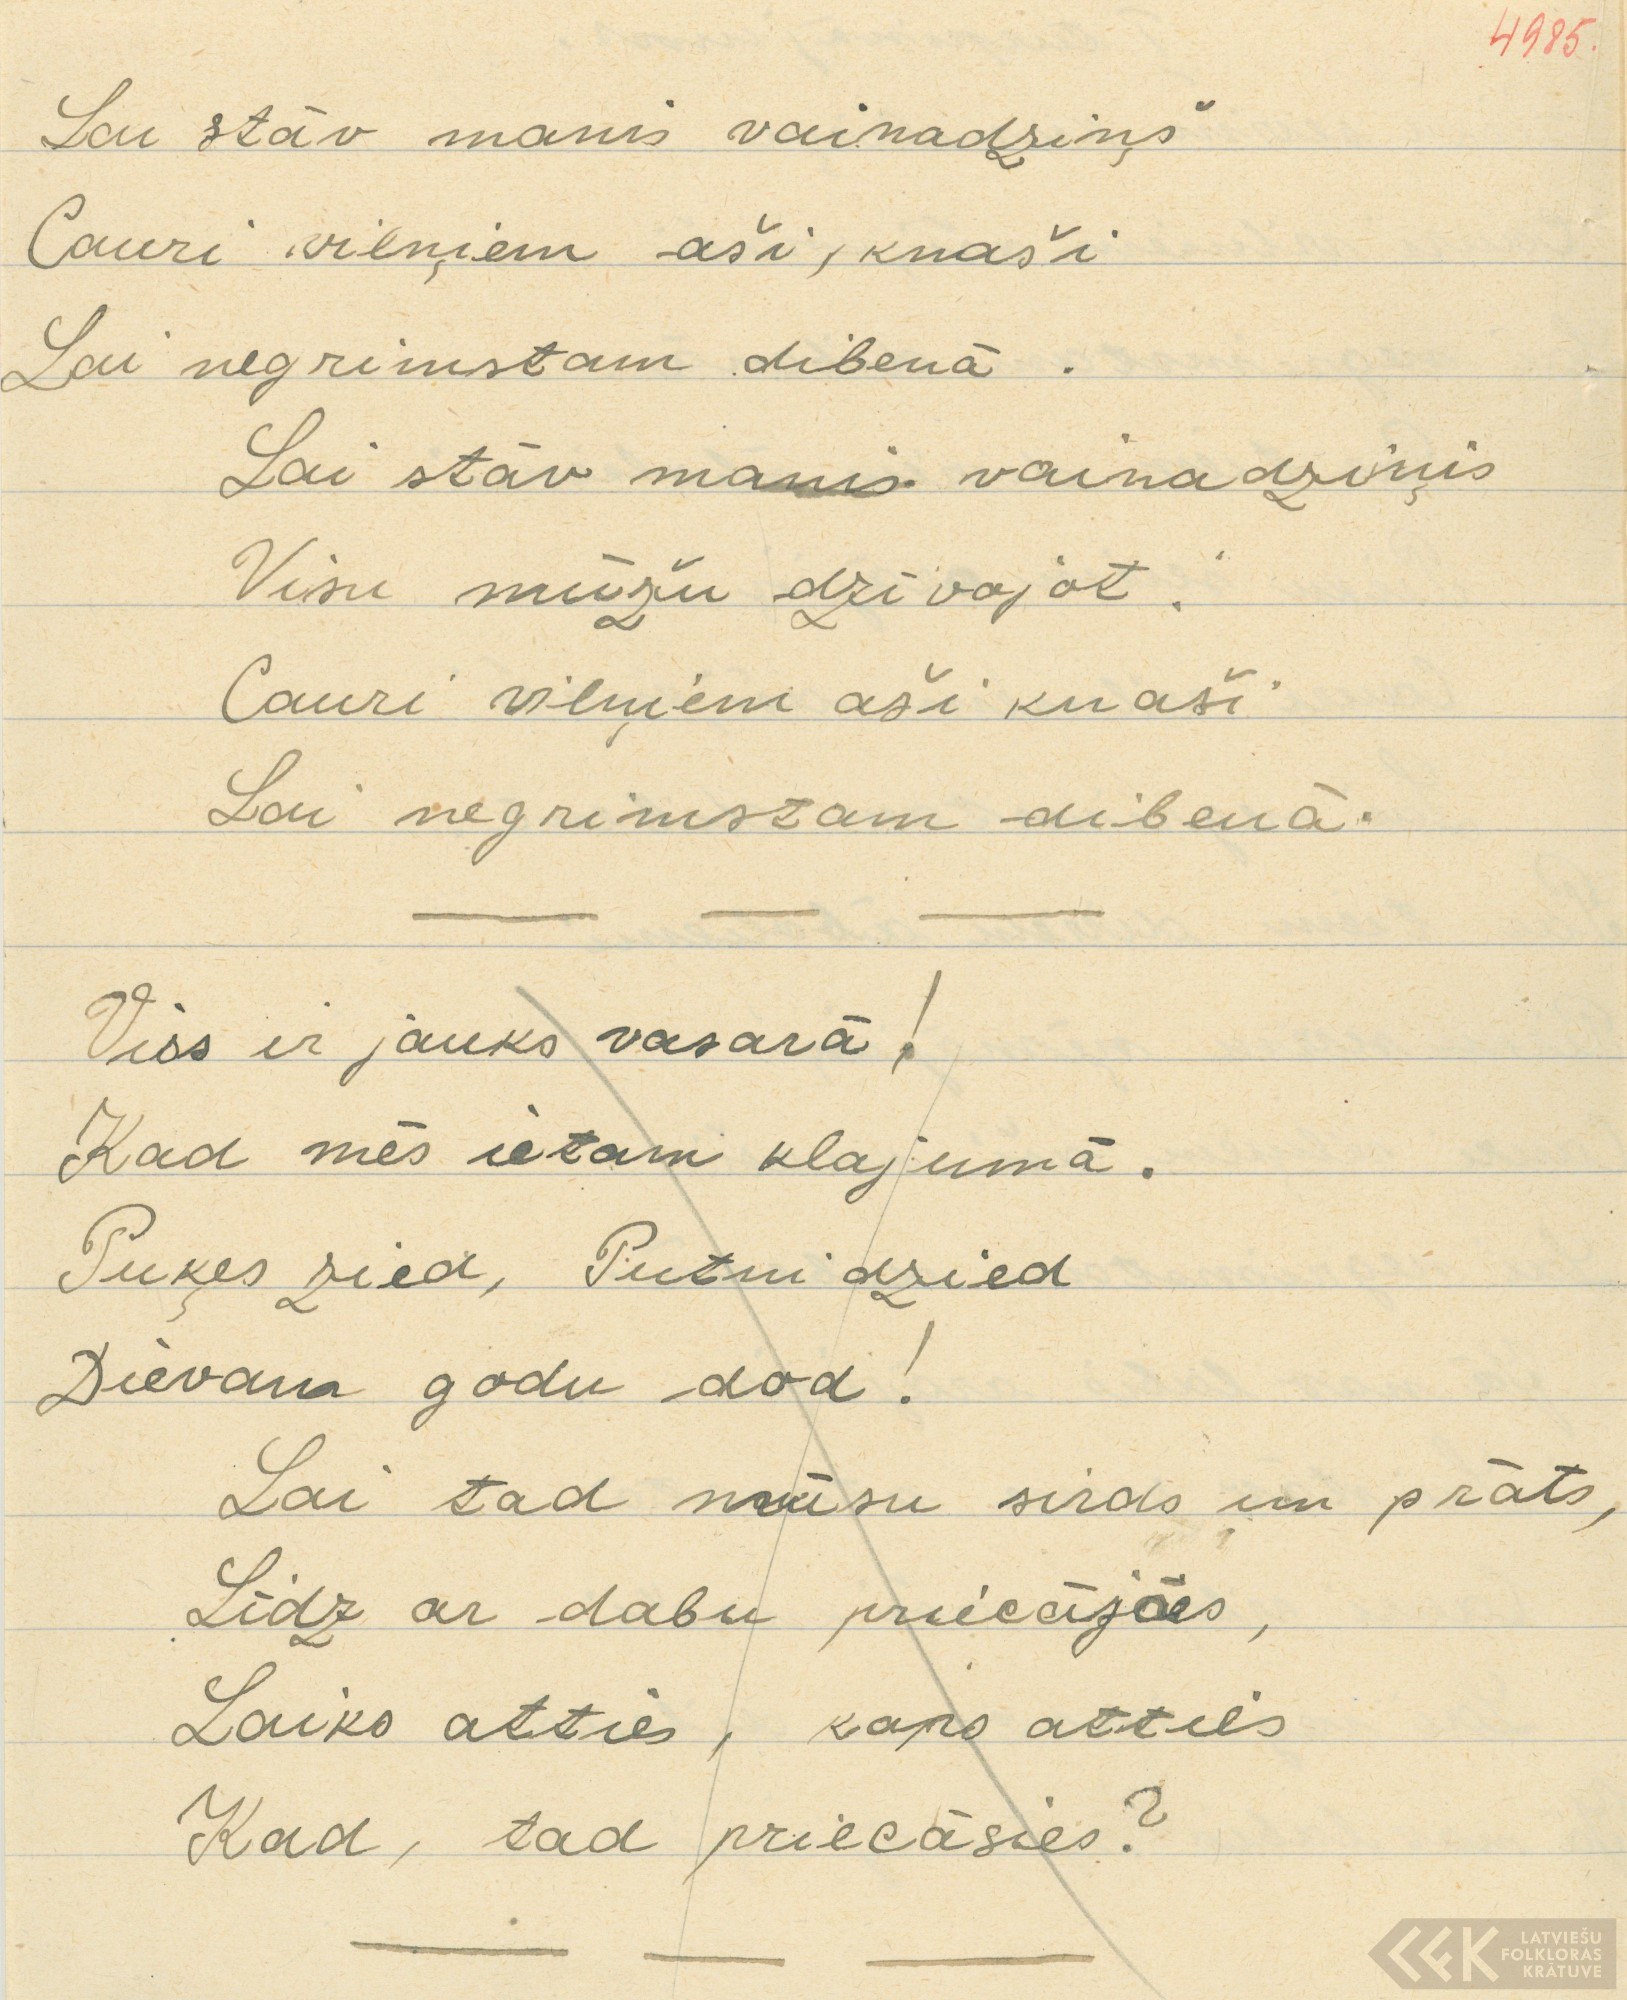 4985.
Lai stāv manis vainadziņš
Cauri vilņiem aši, knaši
Lai negrimstam dibenā.
Lai stāv manis vainadziņis
Visu mūžu dzīvojot.
Cauri vilņiem aši knaši
Lai negrimstam dibenā.
Viss ir jauks vasarā!
Kad mēs ietam klajumā.
Puķes zied, Putni dzied
Dievam godu dod!
Lai tad mūsu sirds un prāts,
Līdz ar dabu priecājās,
Laiks atties, kaps atties
Kad, tad priecāsies?
LATVIEŠU
FOLKLORAS
KRĀTUVE